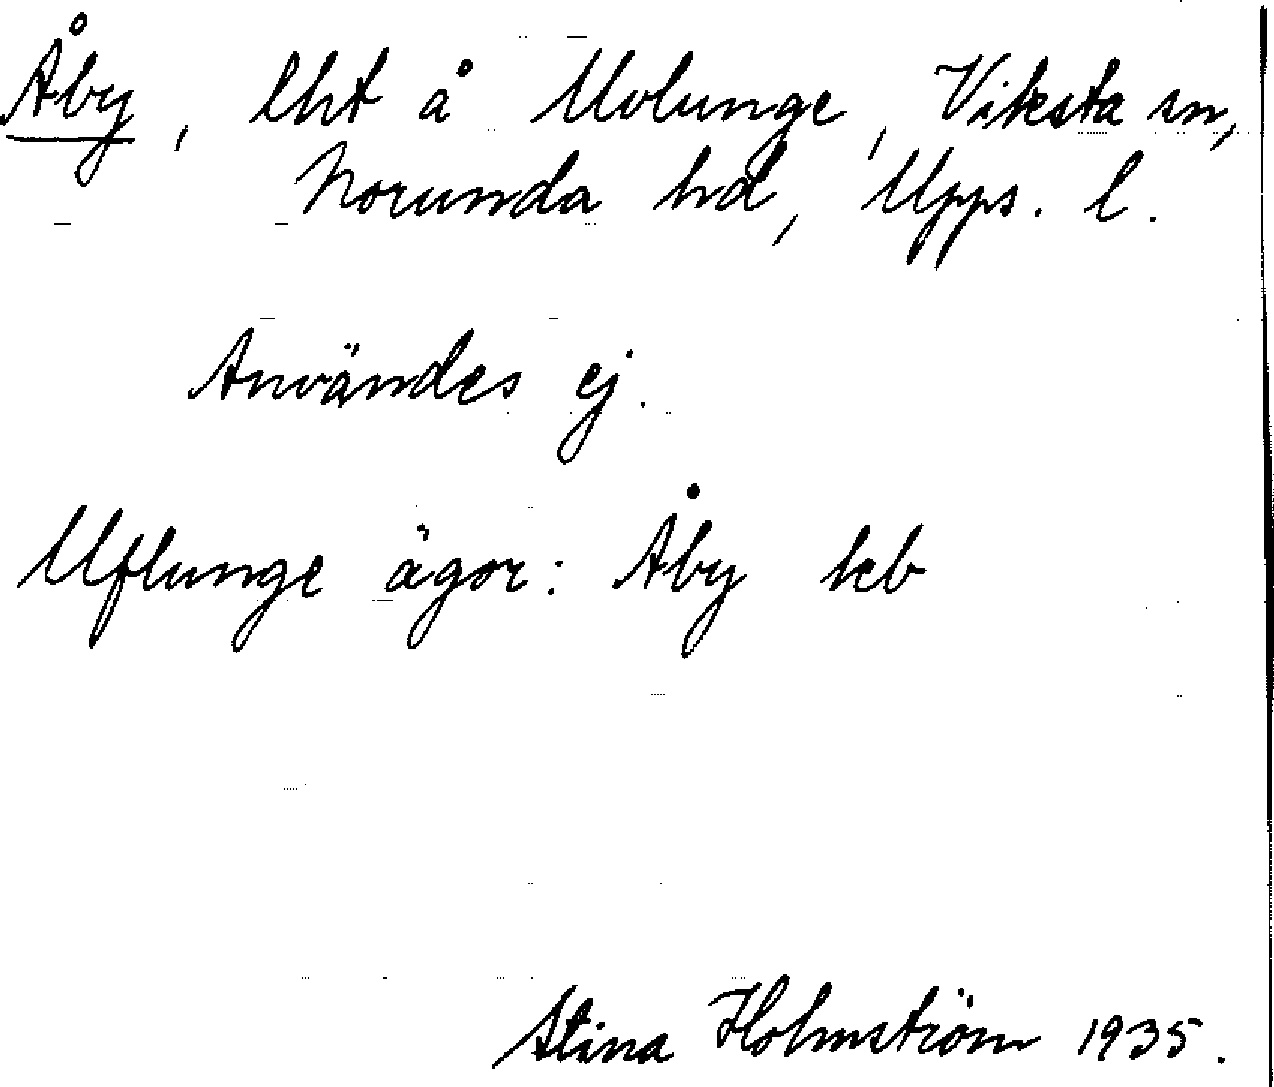 Åby, lht å Uvlunge, Viksta sn,
Norunda hd, Upps. l.
Användes ej.
Uflunge ägor: Åby kb
Stina Holmström 1935.